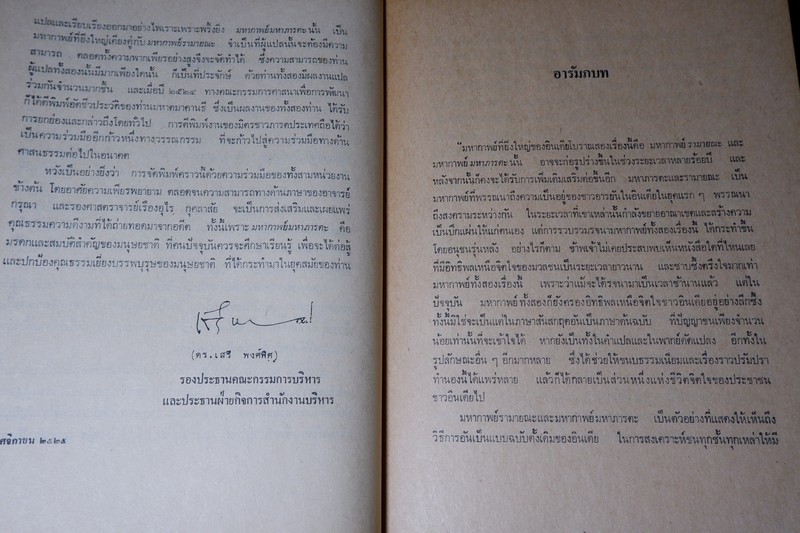 แปลและเรียบเรียงออกมาอย่างไพเราะเพราะพริ้งยิ่ง มหากาพย์มหาภารตะนั้น เป็น
มหากาพย์ที่ยิ่งใหญ่เคียงคู่กับมหากาพย์รามายณะ จำเป็นที่ผู้แปลนั้นจะต้องมีความ
สามารถ ตลอดทั้งความพากเพียรอย่างสูงจึงจะจัดทำได้ ซึ่งความสามารถของท่าน
ผู้แปลทั้งสองนั้นมีมากเพียงใดนั้น ก็เป็นที่ประจักษ์ ด้วยท่านทั้งสองมีผลงานแปล
ร่วมกันจำนวนมากชิ้น และเมื่อปี ๒๕๒๔ ทางคณะกรรมการศาสนาเพื่อการพัฒนา
ก็ได้ตีพิมพ์อัตชีวประวัติของท่านมหาตมาคานธี ซึ่งเป็นผลงานของทั้งสองท่าน ได้รับ
การยกย่องและกล่าวถึงโดยทั่วไป การตีพิมพ์งานของมิตรชาวภารตประเทศถือได้ว่า
เป็นความร่วมมืออีกก้าวหนึ่งทางวรรณกรรม ที่จะก้าวไปสู่ความร่วมมือทางด้าน
ศาสนธรรมต่อไปในอนาคต
หวังเป็นอย่างยิ่งว่า การจัดพิมพ์คราวนี้ด้วยความร่วมมือของทั้งสามหน่วยงาน
ข้างต้น โดยอาศัยความเพียรพยายาม ตลอดจนความสามารถทางด้านภาษาของอาจารย์
กรุณา และรองศาสตราจารย์เรืองอุไร กุศลาสัย จะเป็นการส่งเสริมและเผยแพร่
คุณธรรมความดีงามที่ได้ถ่ายทอดมาจากอดีต ทั้งนี้เพราะมหากาพย์มหาภารตะ คือ
มรดกและสมบัติล้ำคำญของมนุษยชาติ ที่คนปัจจุบันควรจะศึกษาเรียนรู้ เพื่อจะได้ต่อสู้
และปกป้องคุณธรรมเยี่ยงบรรพบุรุษของมนุษยชาติ ที่ได้กระทำมาในยุคสมัยของท่าน
(ดร. เสรี พงศ์พิศ)
รองประธานคณะกรรมการบริหาร
และประธานฝ่ายกิจการสำนักงานบริหาร
ศจิกายน ๒๕๒๕
อารัมภบท
"มหากาพย์ที่ยิ่งใหญ่ของอินเดียโบราณสองเรื่องนี้คือ มหากาพย์รามายณะ และ
มหากาพย์มหาภารตะนั้น อาจจะก่อรูปร่างขึ้นในช่วงระยะเวลาหลายร้อยปี และ
หลังจากนั้นก็คงจะได้รับการเพิ่มเติมเสริมต่อขึ้นอีก มหาภารตะและรามายณะ เป็น
มหากาพย์ที่พรรณนาถึงความเป็นอยู่ของชาวอารยันในอินเดียในยุคแรก ๆ พรรณนา
ถึงสงครามระหว่างกัน ในระยะเวลาที่เขาเหล่านั้นกำลังขยายอาณาเขตและสร้างความ
เป็นปึกแผ่นให้แก่ตนเอง แต่การรวบรวมรจนามหากาพย์ทั้งสองเรื่องนี้ ได้กระทำขึ้น
โดยอนุชนรุ่นหลัง อย่างไรก็ตาม ข้าพเจ้าไม่เคยประสบพบเห็นหนังสือใดที่ไหนเลย
ที่มีอิทธิพลเหนือจิตใจของมวลชนเป็นระยะเวลายาวนาน และซาบซึ้งตรึงใจมากเท่า
มหากาพย์ทั้งสองเรื่องนี้ เพราะว่าแม้จะได้รจนามาเป็นเวลาช้านานแล้ว แต่ใน
ปัจจุบัน มหากาพย์ทั้งสองก็ยังครองอิทธิพลเหนือจิตใจชาวอินเดียอยู่อย่างลึกซึ้ง
ทั้งนี้มิใช่จะเป็นแต่ในภาษาสันสกฤตอันเป็นภาษาต้นฉบับ ที่ปัญญาชนเพียงจำนวน
น้อยเท่านั้นที่จะเข้าใจได้ หากยังเป็นทั้งในคำแปลและในพากย์ดัดแปลง อีกทั้งใน
รูปลักษณะอื่น ๆ อีกมากหลาย ซึ่งได้ช่วยให้ขนบธรรมเนียมและเรื่องราวปรัมปรา
ทำนองนี้ได้แพร่หลาย แล้วก็ได้กลายเป็นส่วนหนึ่งแห่งชีวิตจิตใจของประชาชน
ชาวอินเดียไป
มหากาพย์รามายณะและมหากาพย์มหาภารตะ เป็นตัวอย่างที่แสดงให้เห็นถึง
วิธีการอันเป็นแบบฉบับดั้งเดิมของอินเดีย ในการสงเคราะห์ชนทุกชั้นทุกเหล่าให้มี